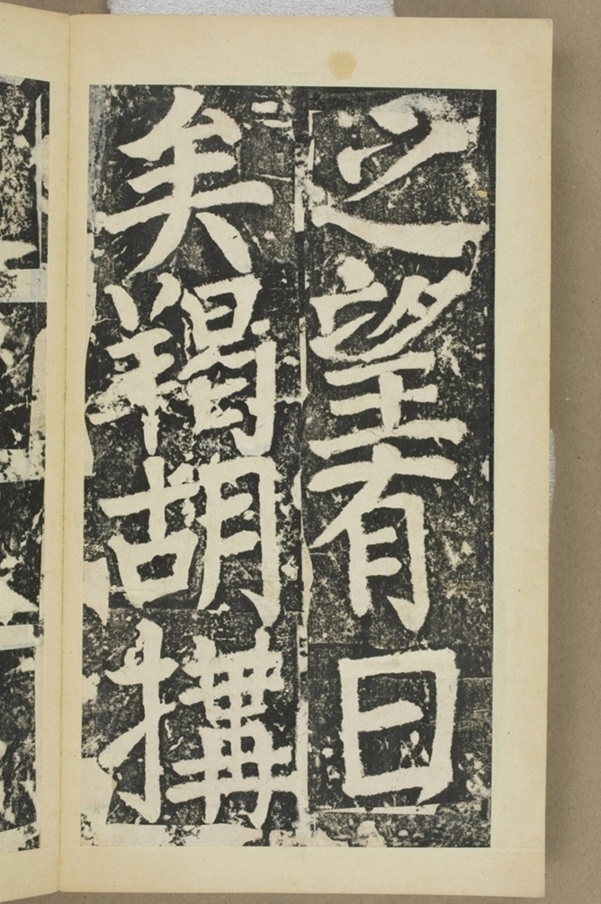 之望有日
矣羯胡搆